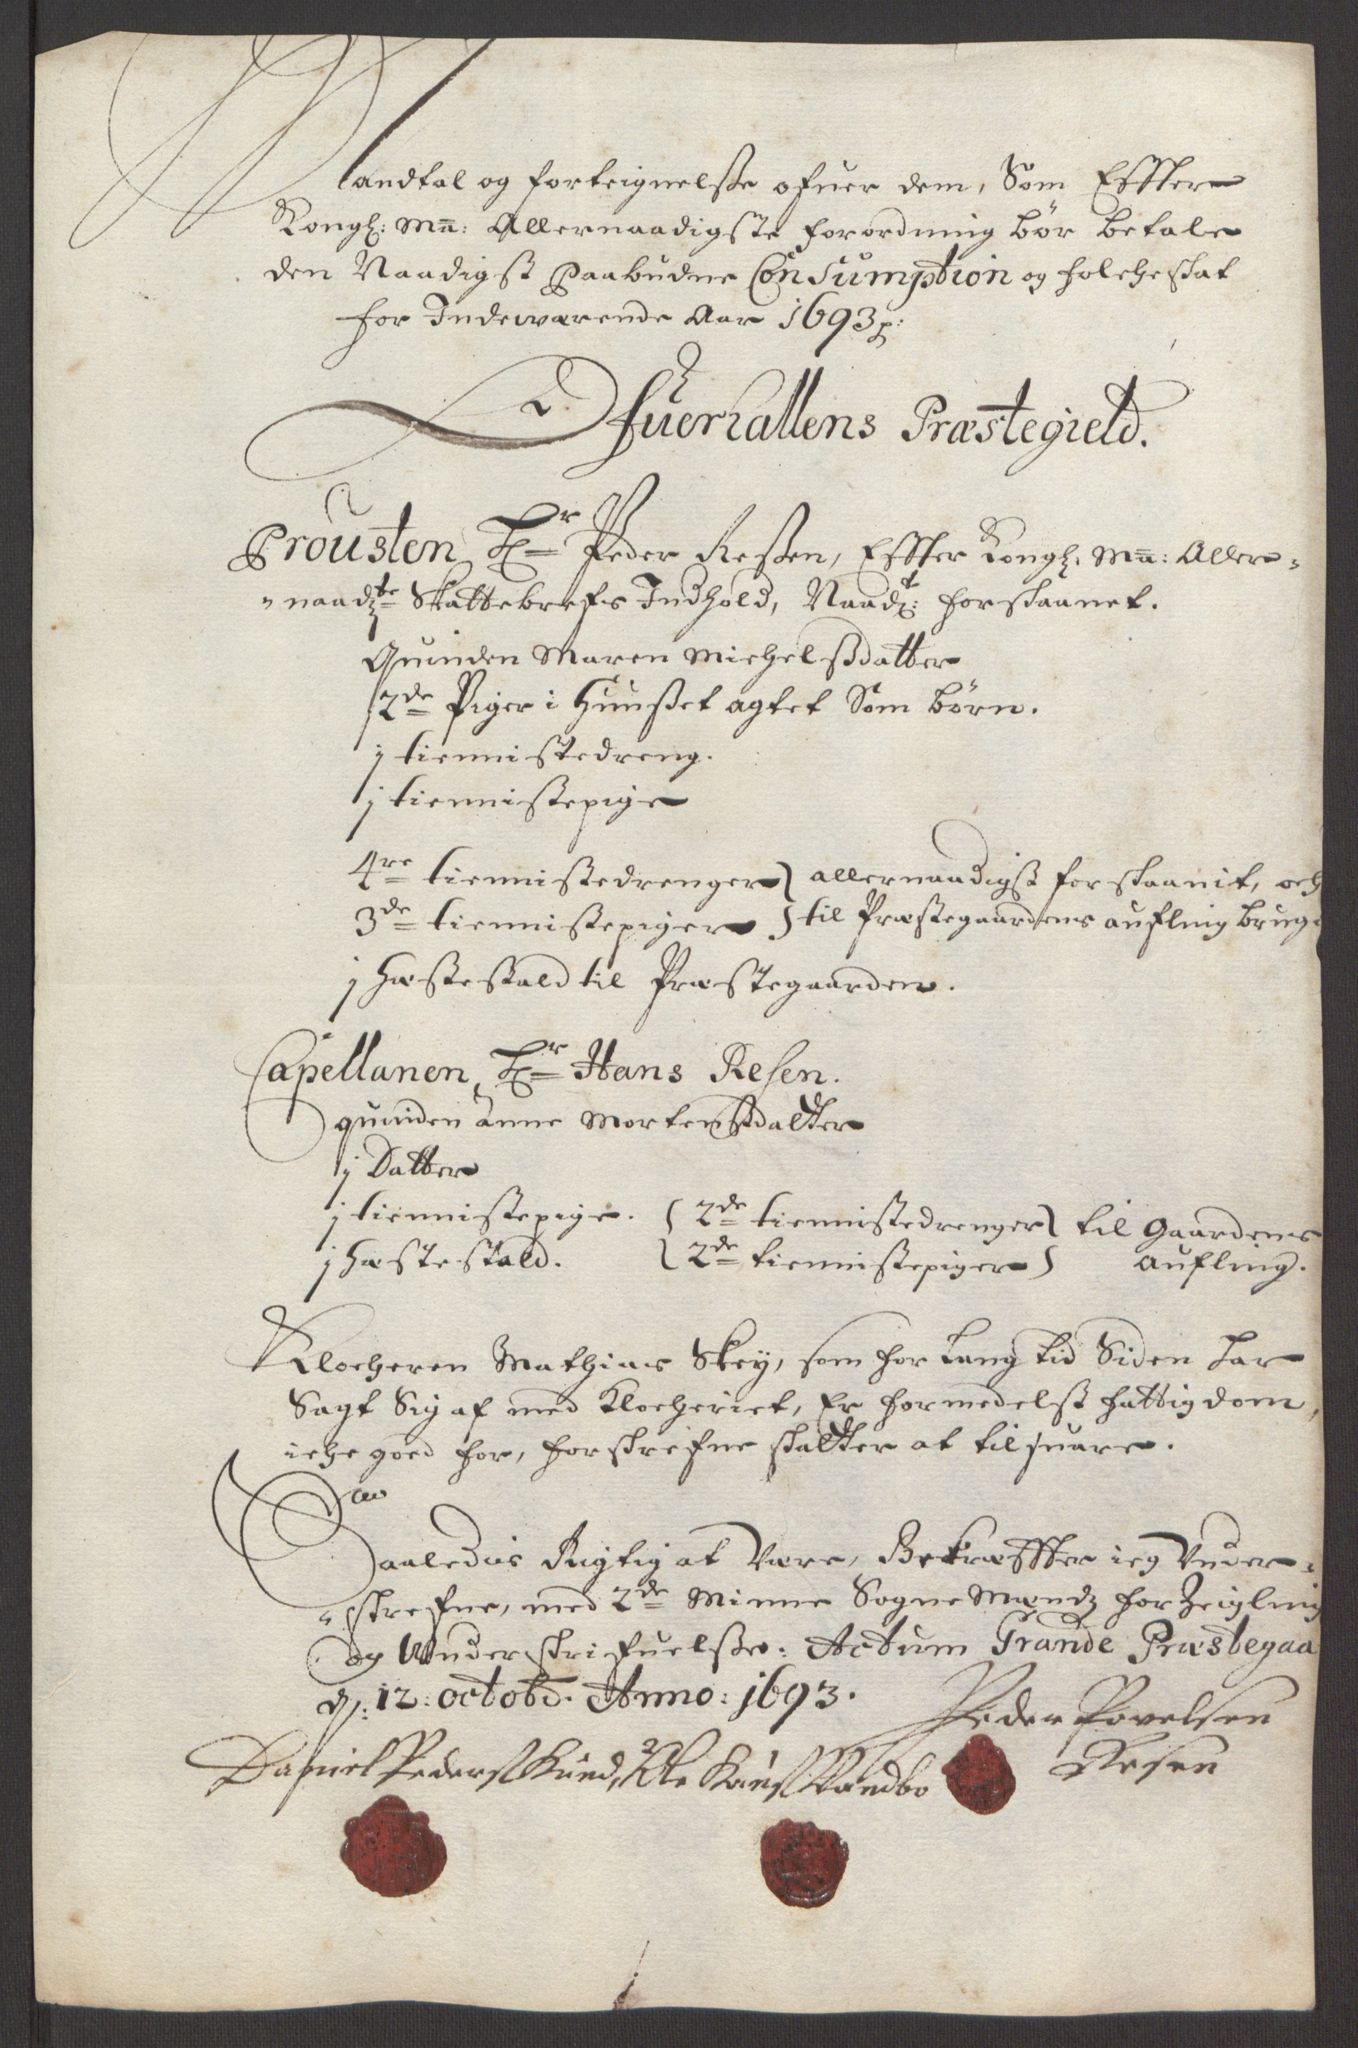 Mandtal og forteignelsse ofuer dem, Som Effter
Kongl: Maÿ: Allernaadigste forordning bør betale
den Naadigst Paabudne Consumption og folcheskat
for Indeværende Aar 1693 p:
Ofuerhallens Præstegield.
Prousten Hr Peder Ressen, Effter Kongl: Maÿ: Aller-
-naadste Skattebrefs Indhold, Naadt: forskaanet.
Quinden Maren Michelssdatter
2de Piger i Huusset agtet Som børn.
j tiennistedreng.
j tiennistepige
4re tiennistedrenger } allernaadigst forskaanit, och
3de tiennistepiger } til Præstegaardens aufling brug
j Hæstestald til Præstegaarden.
Capellanen Hr Hans Resen.
quinden Anne Mortenssdatter
j Datter
j tiennistepige. { 2de tiennistedrenger } til Gaardens
j Hæstestald. { 2de tiennistepiger } aufling.
Klocheren Mathias Skey, som for lang tid Siden har
Sagt Sig af med Klocheriet, Er formedelst fattigdom,
iche goed for, forskrefne skatter at tilsuare.
Saaledis Rigtig at være, Bekræffter ieg Under-
-skrefne, med 2de Minne SogneMændz forZeigling
og Underskrifuelsse: Actum Grande Præstegaa
d: 12: octobr: Anno: 1693.
Peder Povelsen
Resen
Daniel Peders Lund, Ole Vandbo